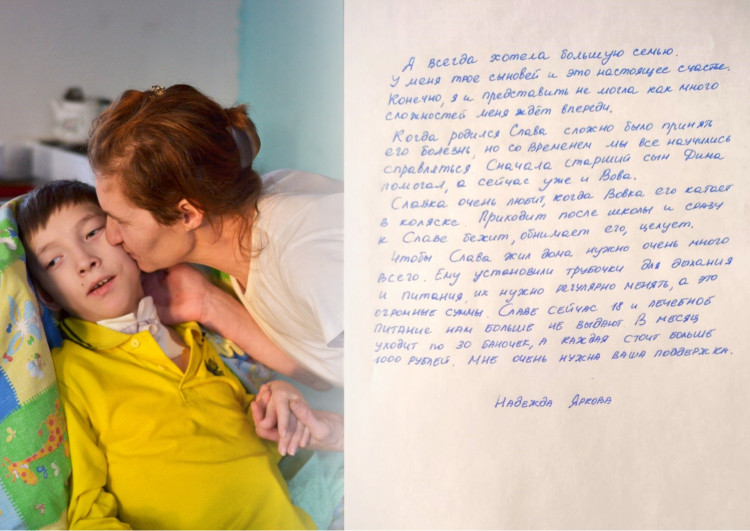 Я всегда хотела большую семью.
У меня трое сыновей и это настоящее счастье.
Конечно, я и представить не могла как много
сложностей меня ждёт впереди.
Когда родился Слава сложно было принять
его болезнь, но со временем мы все научились
справляться. Сначала старший сын Дима
помогал, а сейчас уже и Вова.
Славка очень любит, когда Вовка его катает
в коляске. Приходит после школы и сразу
к Славе бежит, обнимает его, целует.
Чтобы Слава жил дома нужно очень много
всего. Ему установили трубочки для дыхания
и питания, их нужно регулярно менять, а это
огромные суммы. Славе сейчас 18 и лечебное
питание нам больше не выдают. В месяц
уходит по 30 баночек, а каждая стоит больше
1000 рублей. Мне очень нужна ваша поддержка.
Надежда Яркова